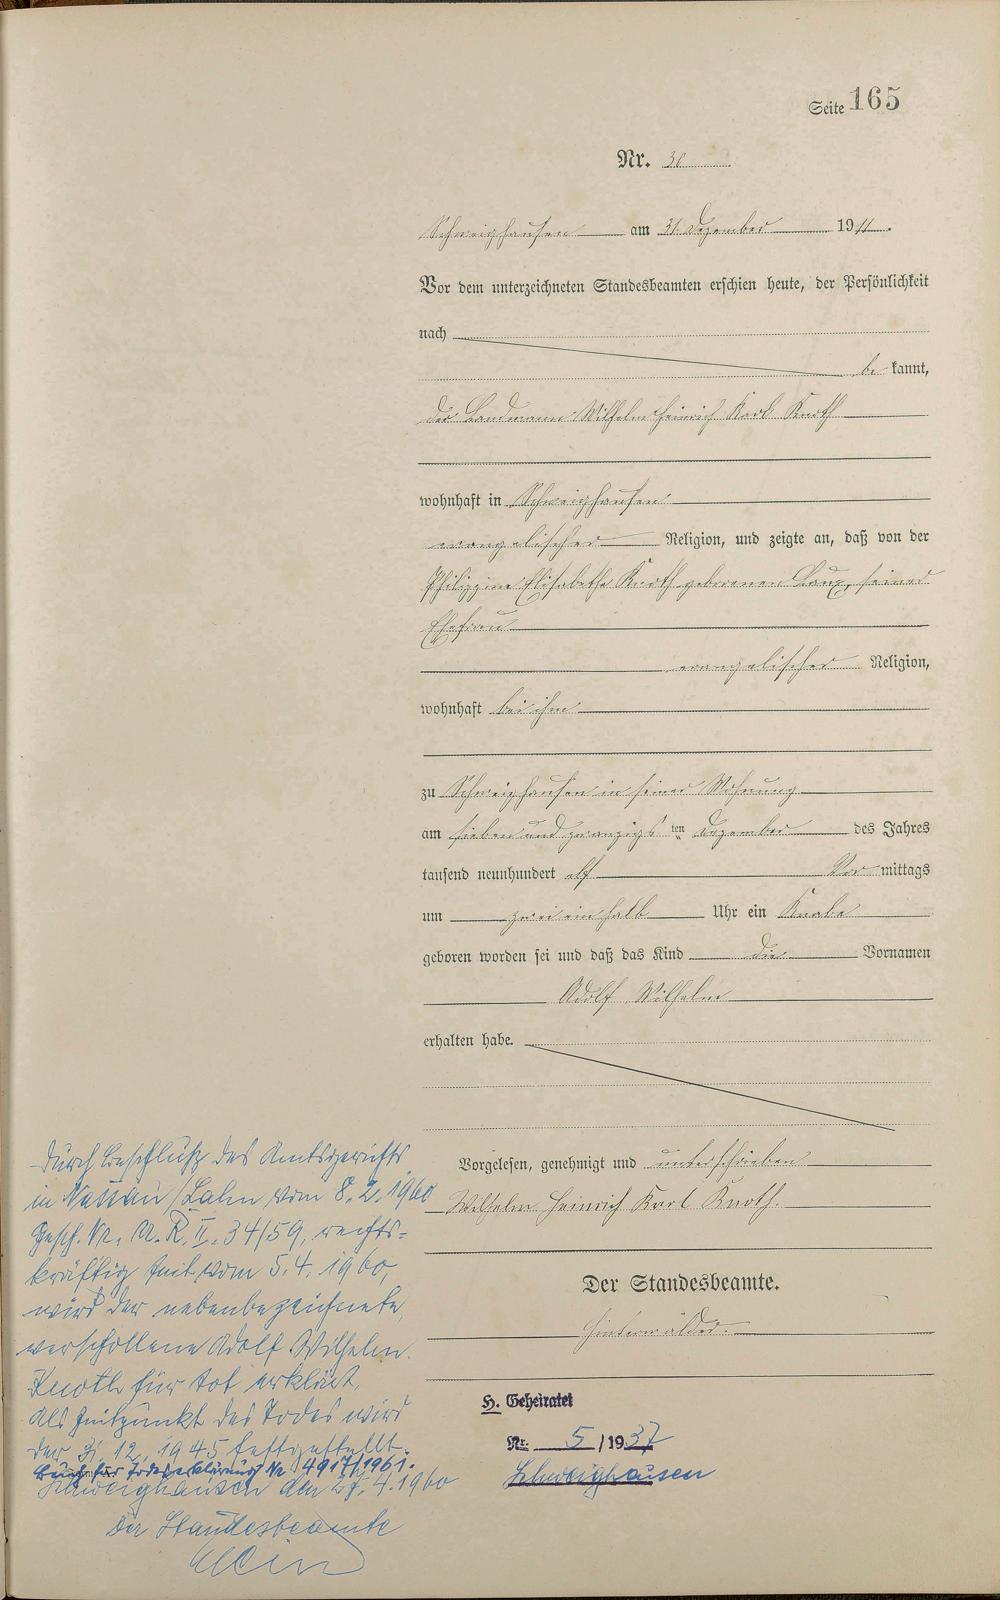 Seite 165
Nr. 30
Schweighausen am 31. Dezember 1911.
Vor dem unterzeichneten Standesbeamten erschien heute, der Persönlichkeit
nach
be kannt,
der Landmann Wilhelm Heinrich Karl Knoth
wohnhaft in Schweighausen
evangelischer Religion, und zeigte an, daß von der
Philippine Elisabethe Knoth geborenen Laux, seiner
Ehefrau
evangelischer Religion,
wohnhaft bei ihm
zu Schweighausen in seiner Wohnung
am sieben und zwanzigs ten Dezember des Jahres
tausend neunhundert elf Vor mittags
um zwei ein halb Uhr ein Knabe
geboren worden sei und daß das Kind die Vornamen
Adolf Wilhelm
erhalten habe.
Vorgelesen, genehmigt und unterschrieben
Wilhelm Heinrich Karl Knoth.
Der Standesbeamte.
Hinterwälder.
H. Geheiratet
Nr. 5/1937
Schweighausen
Durch Beschluß des Amtsgerichts
in Nassau/Lahn vom 8.2.1960
Gesch. Nr. U.R.II.34/59, rechts-
kräftig seit vom 5.4.1960,
wird der nebenbezeichnete,
verschollene Adolf Wilhelm
Knoth für tot erklärt.
Als Zeitpunkt des Todes wird
der 31.12.1945 festgestellt.
Buch für Todeserklärung Nr. 4917/1961.
Schweighausen den 27.4.1960
Der Standesbeamte